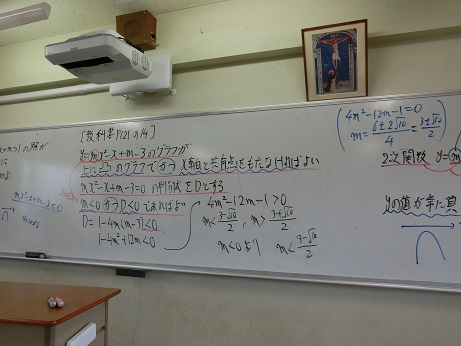 [教科書P121の14]
y=mx²-x+m-3のグラフが
上に凸のグラフでかつx軸と共有点をもたなければよい
mx²-x+m-3=0の判別式をDとする
m<0かつD<0であればよい
D=1-4m(m-3)<0
1-4m²+12m<0
4m²-12m-1>0
m<(3-√10)/2, m>(3+√10)/2
m<0より m<(3-√10)/2
4m²-12m-1=0
m=(6±2√10)/4=(3±√10)/2
2次関数 y=m
yの値が常に